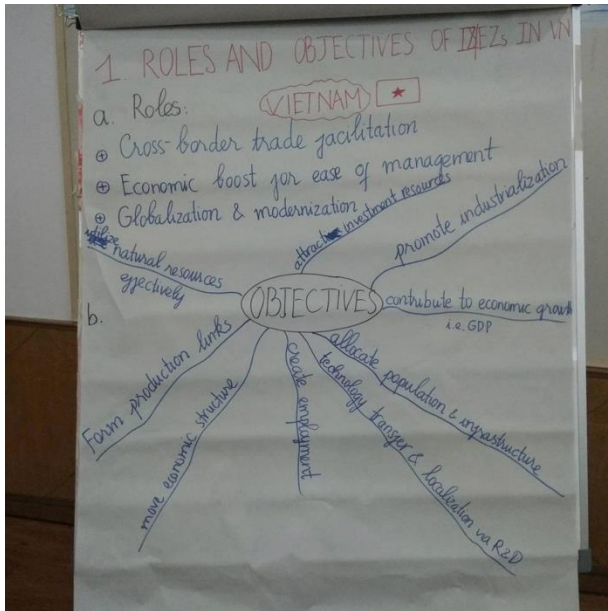 1. ROLES AND OBJECTIVES OF EZs IN VN
VIETNAM
a. Roles:
⊕ Cross-border trade facilitation
⊕ Economic boost for ease of management
⊕ Globalization & modernization
b.
OBJECTIVES
utilize natural resources
effectively
attract investment resources
promote industrialization
contribute to economic growth
i.e. GDP
allocate population & infrastructure
technology transfer & localization via R&D
create employment
move economic structure
Form production links